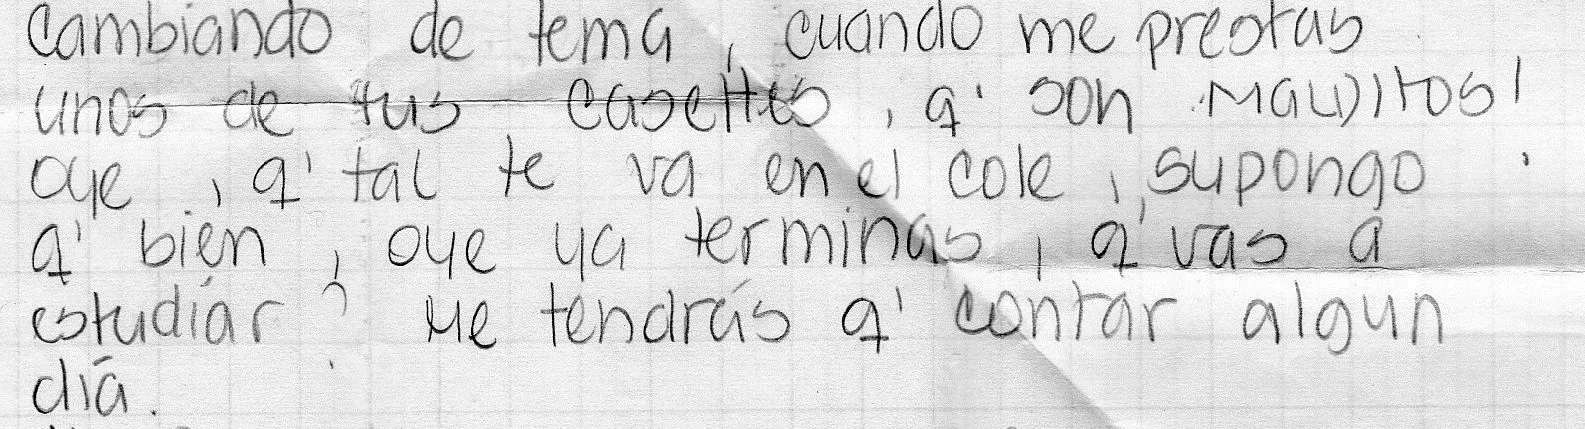 cambiando de tema, cuando me prestas
unos de tus casettes, q' son MALDITOS!
oye, q' tal te va en el cole, supongo
q' bien, oye ya terminas, q' vas a
estudiar? Me tendrás q' contar algun
día.